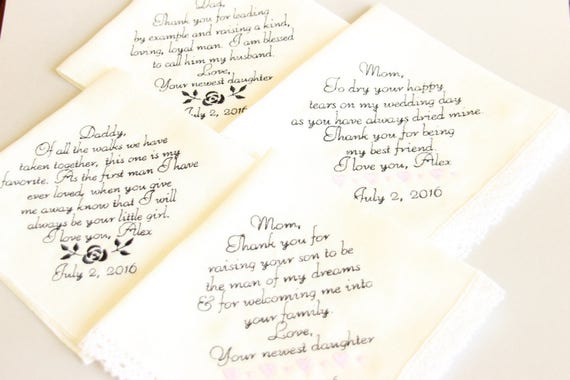 Dad,
Thank you for leading
by example and raising a kind,
loving, loyal man. I am blessed
to call him my husband.
Love,
Your newest daughter
July 2, 2016
Mom,
To dry your happy
tears on my wedding day
as you have always dried mine.
Thank you for being
my best friend.
I love you, Alex
July 2, 2016
Daddy,
Of all the walks we have
taken together, this one is my
favorite. As the first man I have
ever loved, when you give
me away know that I will
always be your little girl.
I love you, Alex
July 2, 2016
Mom,
Thank you for
raising your son to be
the man of my dreams
& for welcoming me into
your family.
Love,
Your newest daughter